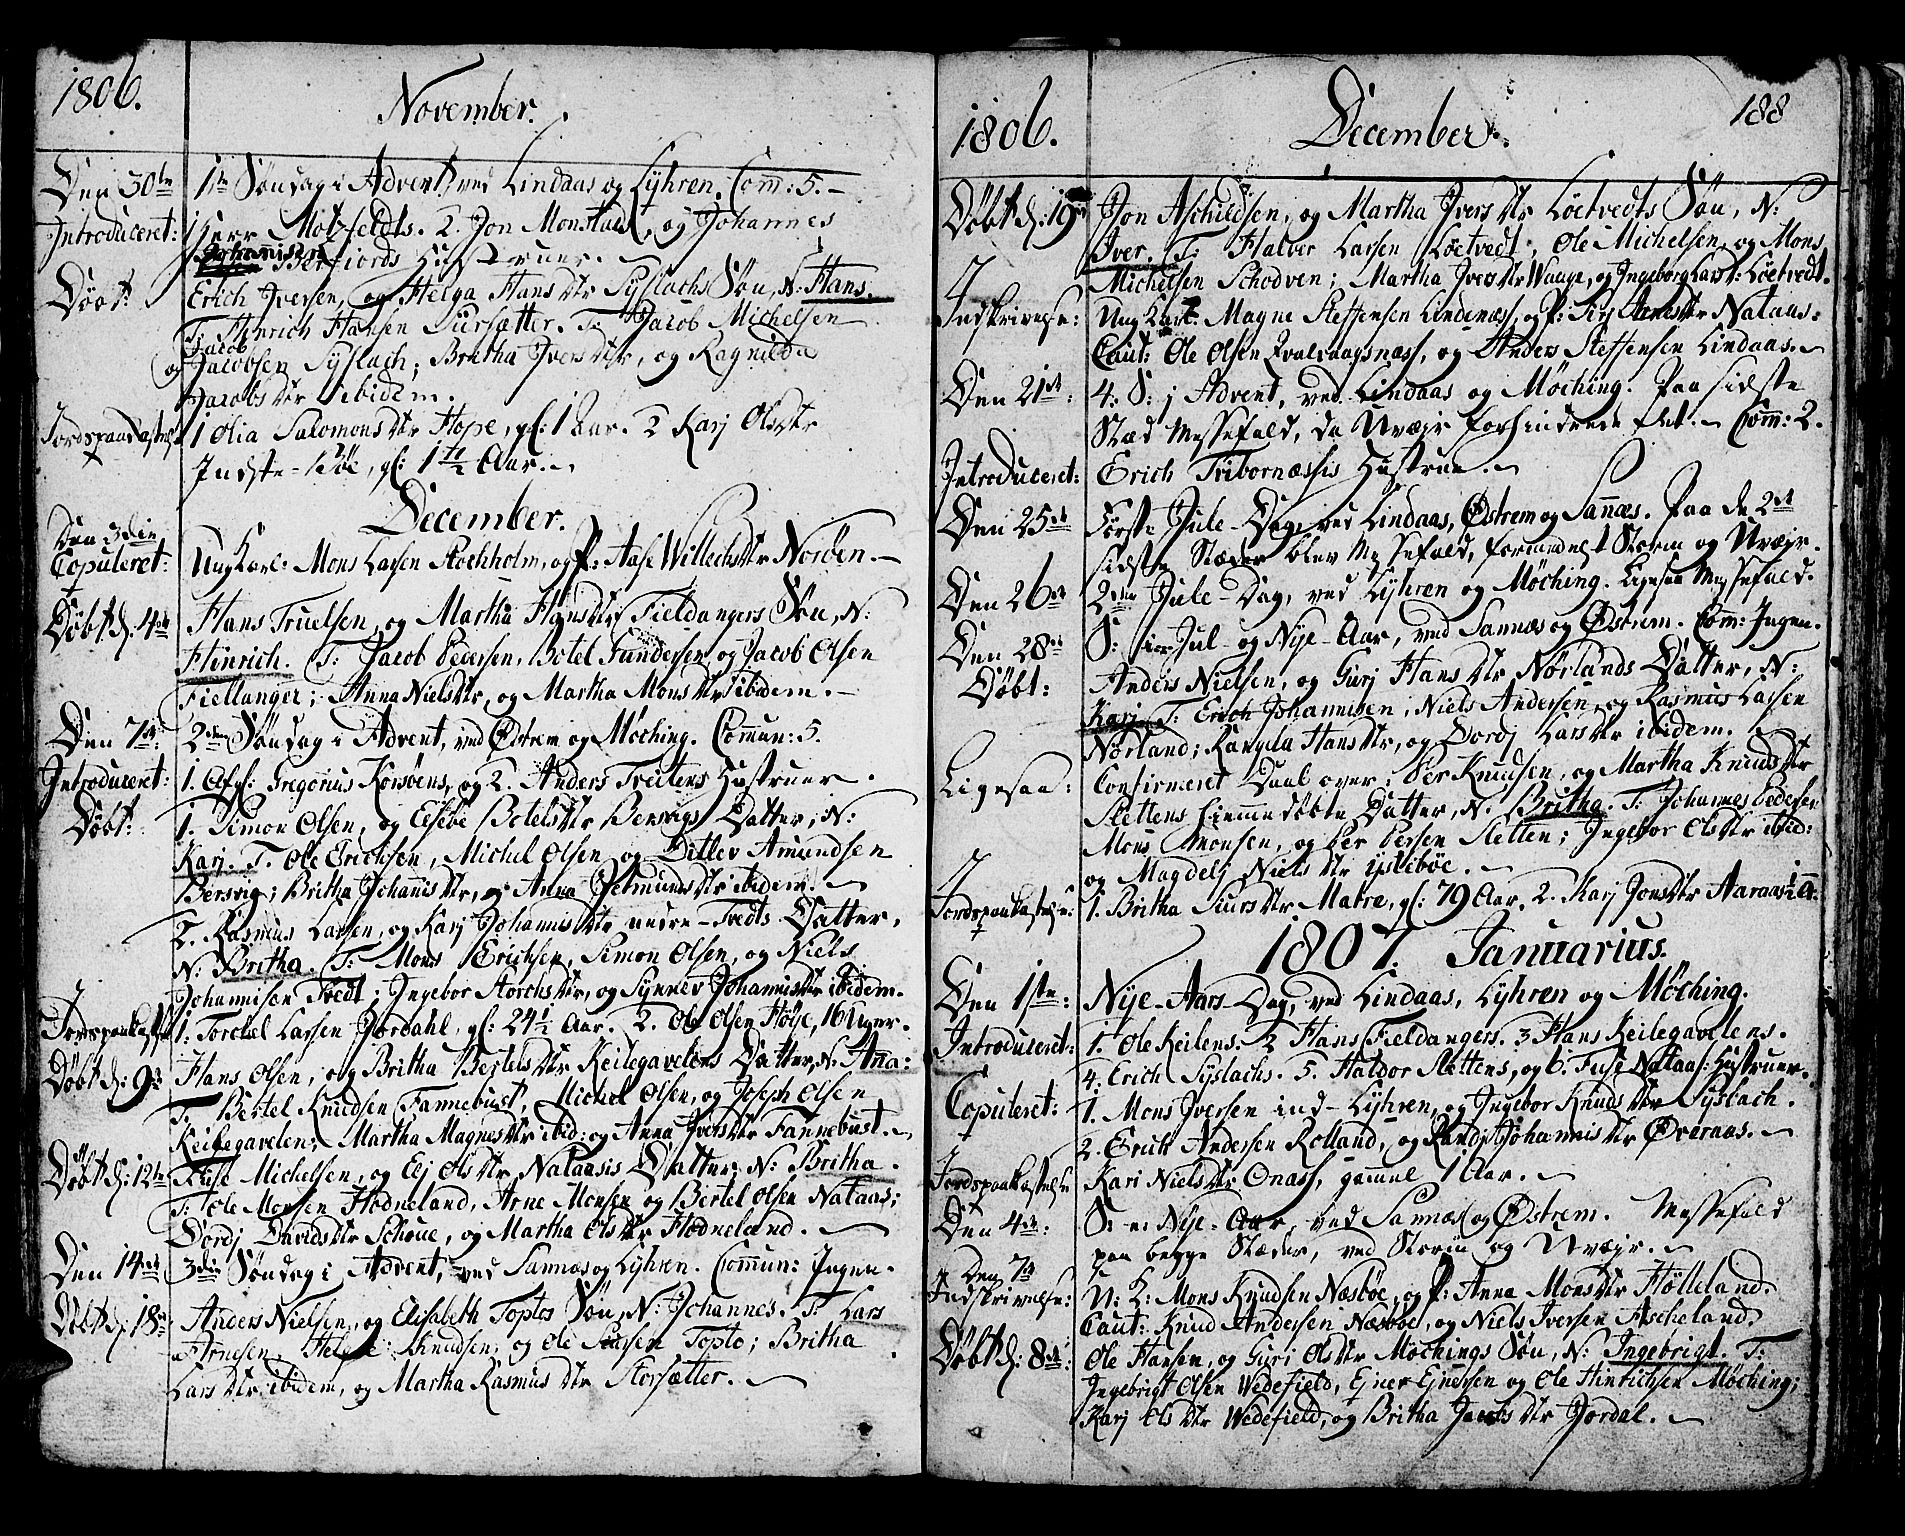 1806.
November.
Den 30te 1ste Søndag i Advent, ved Lindaas og Lyhren. Com: 5.
Introduceret: 1 Herr Motzfeldts. 2. Jon Monstad, og Johannes
Johannisen Berfiords Hustruer.
Døbt: Erich Iversen, og Helga Hans dtr Syslachs Søn, N: Hans.
T: Hinrich Hansen Sursætter. T: Jacob Michelsen
Jacob
og Jacobsen Syslach; Britha Ivers dtr, og Ragnilda
Jacobs dtr ibidem.
Jordspaakastelse 1 Olia Salomons dtr Hope, gl: 1 Aar. 2 Karj Ols dtr
Indste-Bøe, gl: 1 1/2 Aar.
December.
Den 3die
Copuleret: Ung Karl: Mons Larsen Stochholm, og P: Aase Willechs dtr Norøen.
Døbt d: 4de Hans Truelsen, og Martha Hans dtr Fieldangers Søn, N:
Hinrich. T: Jacob Pedersen, Botel Gundersen og Jacob Olsen
Fiellanger; Anna Niels dtr, og Martha Mons dtr ibidem.
Den 7de: 2den Søndag i Advent, ved Østrem og Møching. Commun: 5.
Introduceret: 1. Afgl: Gregorius Korsøens, og 2. Anders Treitens Hustruer.
Døbt: 1. Simon Olsen, og Elsebe Botels dtr Bersvigs Datter, N:
Karj. T. Ole Erichsen, Michel Olsen og Ditlev Amundsen
Bersvig; Britha Johannis dtr, og Anna Ædmunds dtr ibidem.
2. Rasmus Larsen, og Karj Johannis dtr nedre-Tvedts Datter,
N: Britha. T: Mons Erichsen, Simon Olsen, og Niels
Johannisen Tvedt; Ingebor Storchs dtr, og Synnev Johannis dtr ibidem.
Jordspaakastelse 1. Torchel Larsen Jordahl, gl: 24 1/2 Aar. 2. Ole Olsen Høye, 16 Uger.
Døbt d: 9de Hans Olsen, og Britha Bertels dtr Keilegavelens Datter, N: Anna:
T: Bertel Knudsen Fannebust, Michel Olsen, og Joseph Olsen
Keilegavelen; Martha Magnes dtr ibid: og Anna Ivers dtr Fannebust.
Døbt d: 12te Fuse Michelsen, og Elj Ols dtr Nataasis Datter, N: Britha.
T: Ole Monsen Hodneland, Arne Monsen og Bertel Olsen Nataas;
Dordj Davids dtr Schoue, og Martha Ols dtr Hodneland.
Den 14de 3die Søndag i Advent, ved Sannas og Lyhren. Commun: Ingen.
Døbt d: 18de Anders Nielsen, og Elisabeth Toptos Søn, N: Johannes. T: Lars
Arnesen, Helge Knudsen, og Ole Topto; Britha
Lars dtr ibidem, og Martha Rasmus dtr Storsætter.
1806.
December.
188
Døbt d: 19de Jon Aschildsen, og Martha Ivers dtr Løetvedts Søn, N:
Iver. T: Halvor Larsen Løetvedt, Ole Michelsen, og Mons
Michelsen Schodven; Martha Ivers dtr Wauge, og Ingeborg Lars d: Løetvedt.
Indskrivelse: Ung Karl Magne Steffensen Lindenæss, og P: Sirj Arnes dtr Nataas:
Caut: Ole Olsen Qvalvaagsnæss, og Anders Steffensen Lindaas.
Den 21de: 4. S: i Advent, ved Lindaas og Møching. Paa sidste
Stæd Messefald, da Uvejr forhindrede det. Comm: 2.
Introduceret: Erich Fribornæssis Hustrue.
Den 25de Første Jule-Dag, ved Lindaas, Østrem og Sannæs. Paa de 2de
sidste Stæder blev Messefald, formedelst Storm og Uvejr.
Den 26de 2den Jule-Dag, ved Lyhren og Møching. Ligesaa Messefald.
Den 28de S: imJul- og Nye-Aar, ved Sannæs og Østrem. Com: Ingen.
Døbt: Anders Nielsen, og Gurj Hans dtr Nørlands Datter, N:
Karj. T: Erich Johannisen, Niels Andersen, og Rasmus Larsen
Nørland; Rangela Hans dtr, og Dordj Lars dtr ibidem.
Ligesaa: Confirmeret Daab over: Per Knudsen, og Martha Knuds dtr
Slettens hiemmedøbte Datter, N. Britha. T: Johannes Pedersen
Mons Monsen, og Per Persen Sletten; Ingebor Ols dtr ibid:
og Magdelj Niels dtr Ystebøe.
Jordspaakastelse: 1. Britha Siurs dtr Matre, gl: 79 Aar. 2. Karj Jons dtr Aaraas 1/2 Ar:
1807. Januarius.
Den 1ste: Nye-Aars-Dag, ved Lindaas, Lyhren og Møching.
Introduceret: 1. Ole Keilens. 2 Hans Fieldangers. 3 Hans Keilegavelens.
4. Erich Syslachs. 5. Haldor Slettens, og 6. Fuse Nataas: Hustruer.
Copuleret: 1. Mons Iversen ind-Lyhren, og Ingebor Knuds dtr Syslach.
2. Erich Andersen Rolland, og Randj Johannis dtr Øveraas.
Jordspaakastelse Kari Niels dtr Onass, gammel 1 Aar.
Den 4de: S: e: Nye-Aar, ved Sannæs og Østrem. Messefald
paa begge Stæder, ved Storm og Uvejr.
Den 7de
Indskrivelse: U: K: Mons Knudsen Næsbøe, og P: Anna Mons dtr Hølleland.
Caut: Knud Andersen Næsbøe, og Niels Iversen Ascheland.
Døbt d: 8de: Ole Hansen, og Guri Ols dtr Møchings Søn, N: Ingebrigt. T:
Ingebrigt Olsen Wedefield, Ejner Ejnersen og Ole Hinrichsen Møching;
Karj Ols dtr Wedefield, og Britha Jacobs dtr Jordal.